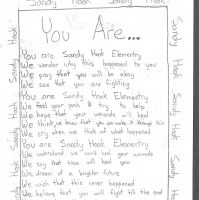 Sandy Hook Sandy Hook
You Are...
You are Sandy Hook Elementry
We wonder why this happened to you
We pray that you will be okay
We see that you are fighting
You are Sandy Hook Elementry
We feel your pain & try to help
We hope that your wounds will heal
We think we know that you will make it through this
We cry when we think of what happened
You are Sandy Hook Elementry
We understand we can't heal your wounds
We say that time will heal you
We dream of a brighter future
We wish that this never happened
We believe that you will fight till the end
Sandy Hook Sandy Hook
Sandy Hook Sandy Hook